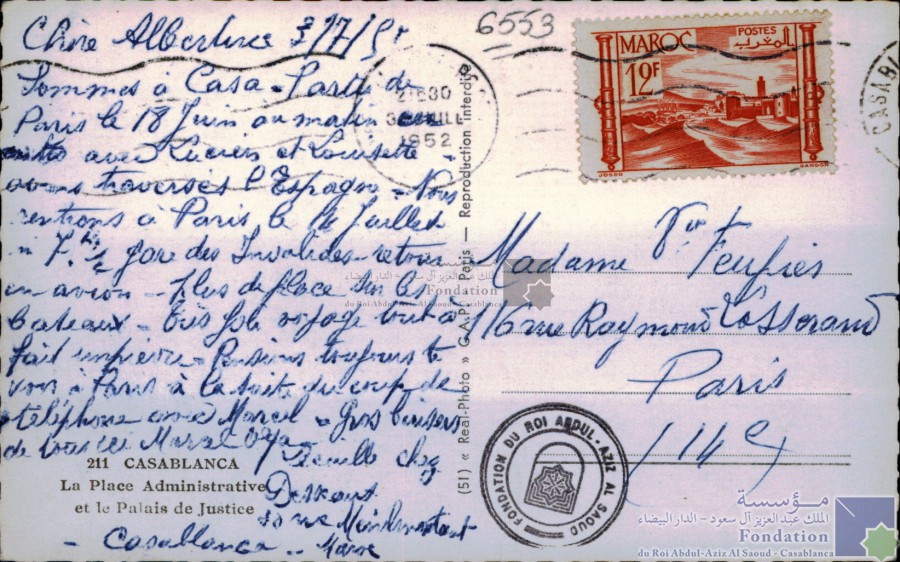 6553
Chère Albertine 3/7/5
Sommes à Casa - Partis de
Paris le 18 Juin au matin en
auto avec Lucien et Louisette
avons traversés l'Espagne - Nous
rentrons à Paris le Juillet
7 h ½ gare des Invalides - retour
en avion - Plus de place sur les
bateaux - très joli voyage tout à
fait imprévu - Pensions toujours te
voir à Paris à la suite du coup de
téléphone avec Marcel - Gros baisers
de tous
Famille chez
Casablanca - Maroc
211 CASABLANCA
La Place Administrative
et le Palais de Justice
(51) « Real-Photo » C.A.P. Paris — Reproduction interdite
21 30
1952
MAROC
POSTES
المغرب
12F
JOSSO
GANDON
CASABL
Madame Vve
116 rue Raymond Losserand
Paris
(14e)
FONDATION DU ROI ABDUL-AZIZ AL SAOUD
الملك عبد العزيز آل سعود - الدار البيضاء
Fondation
du Roi Abdul-Aziz Al Saoud - Casablanca
مؤسسة
الملك عبد العزيز آل سعود - الدار البيضاء
Fondation
du Roi Abdul-Aziz Al Saoud - Casablanca